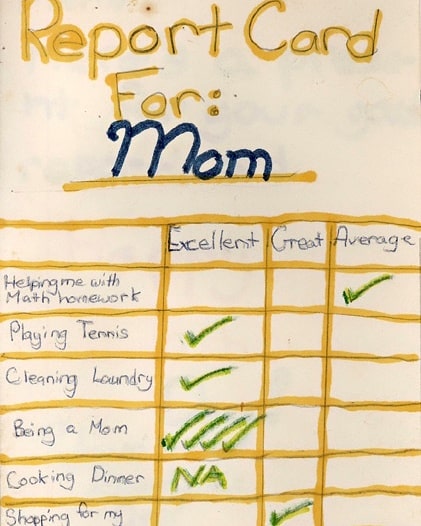 Report Card
For:
Mom
Excellent Great Average
Helping me with
Math homework
Playing Tennis
Cleaning Laundry
Being a Mom
Cooking Dinner NA
Shopping for my